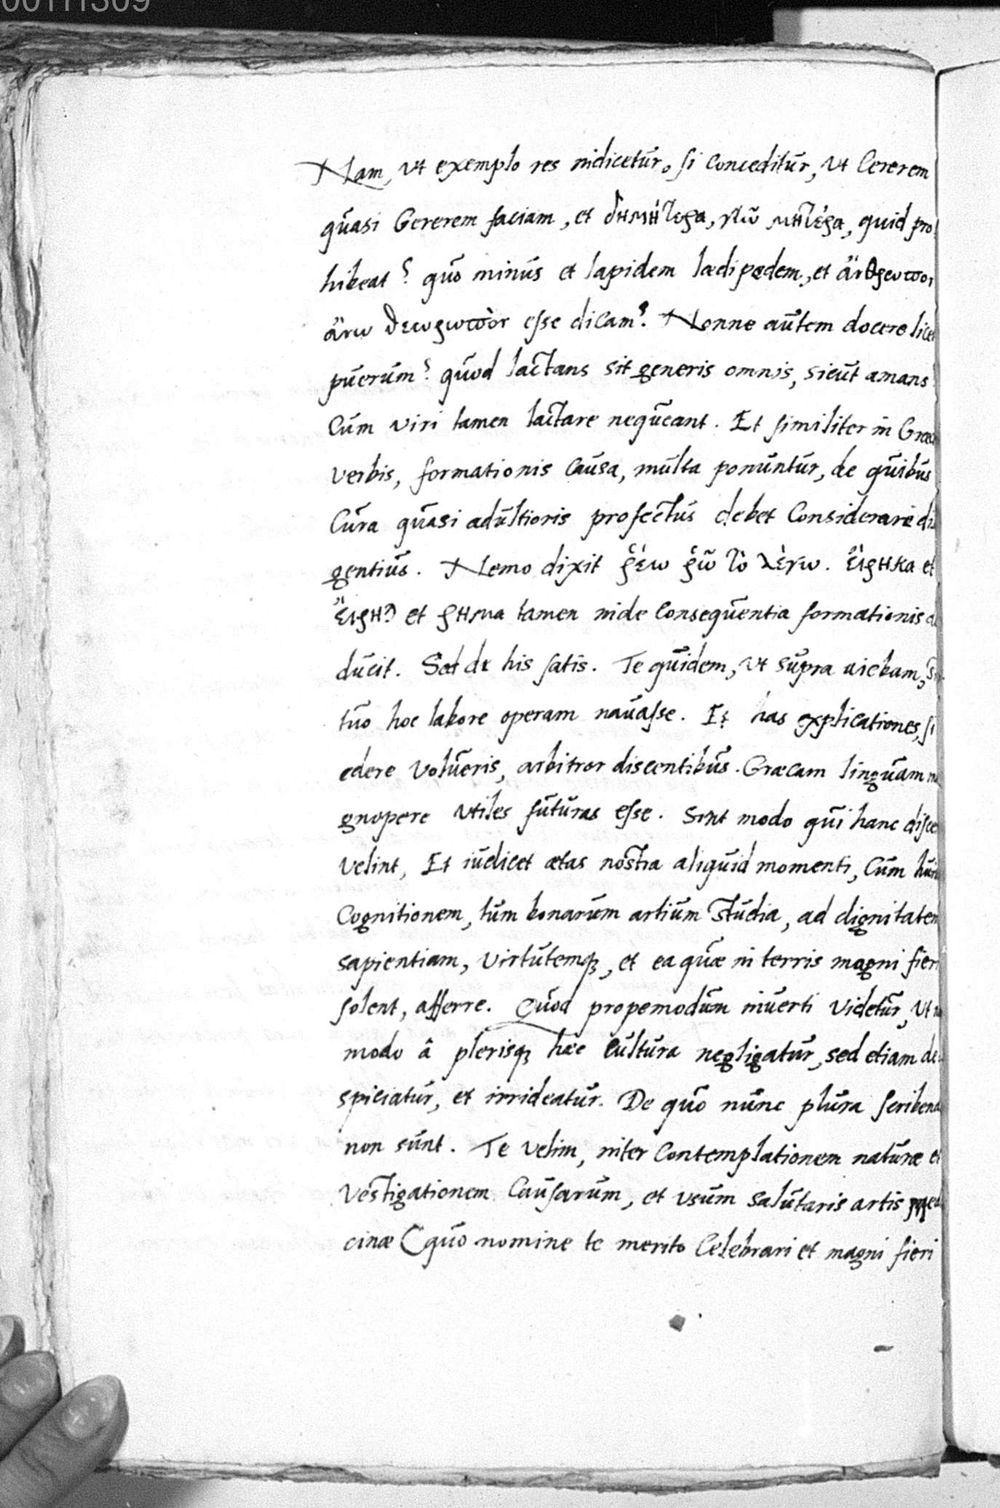 00111309
Nam, ut exemplo res indicetur, si conceditur, ut Cererem
quasi Gererem faciam, et δημήτερα, γῆν μητέρα, quid pro
hibeat? quo minus et lapidem lædipedem, et ἄνθρωπον
ἄνω θεωρωπὸν esse dicam? Nonne autem docere licet
puerum? quod lactans sit generis omnis, sicut amans
Cum viri tamen lactare nequeant. Et similiter in Græcis
verbis, formationis causa, multa ponuntur, de quibus
Cura quasi adultioris profectus debet Considerare di
gentius. Nemo dixit ῥέω ῥῶ τὸ λέγω. εἴρηκα et
et ρημα tamen inde Consequentia formationis
ducit. Sed de his satis. Te quidem, ut supra
tuo hoc labore operam navasse. Et has explicationes, si
edere volueris, arbitror discentibus. Græcam linguam ma
gnopere utiles futuras esse. Sint modo qui hanc discere
velint, Et iudicet ætas nostra aliquid momenti, Cum
Cognitionem, tum bonarum artium studia, ad dignitatem
sapientiam, virtutemq, et ea quæ in terris magni fieri
solent, afferre. Quod propemodum inverti videtur, Ut
modo â plerisq hæc cultura negligatur, sed etiam de
spiciatur, et irrideatur. De quo nunc plura scribenda
non sunt. Te velim, inter Contemplationem naturæ et
Vestigationem Causarum, et usum salutaris artis Medi
cinæ (quo nomine te merito Celebrari et magni fieri